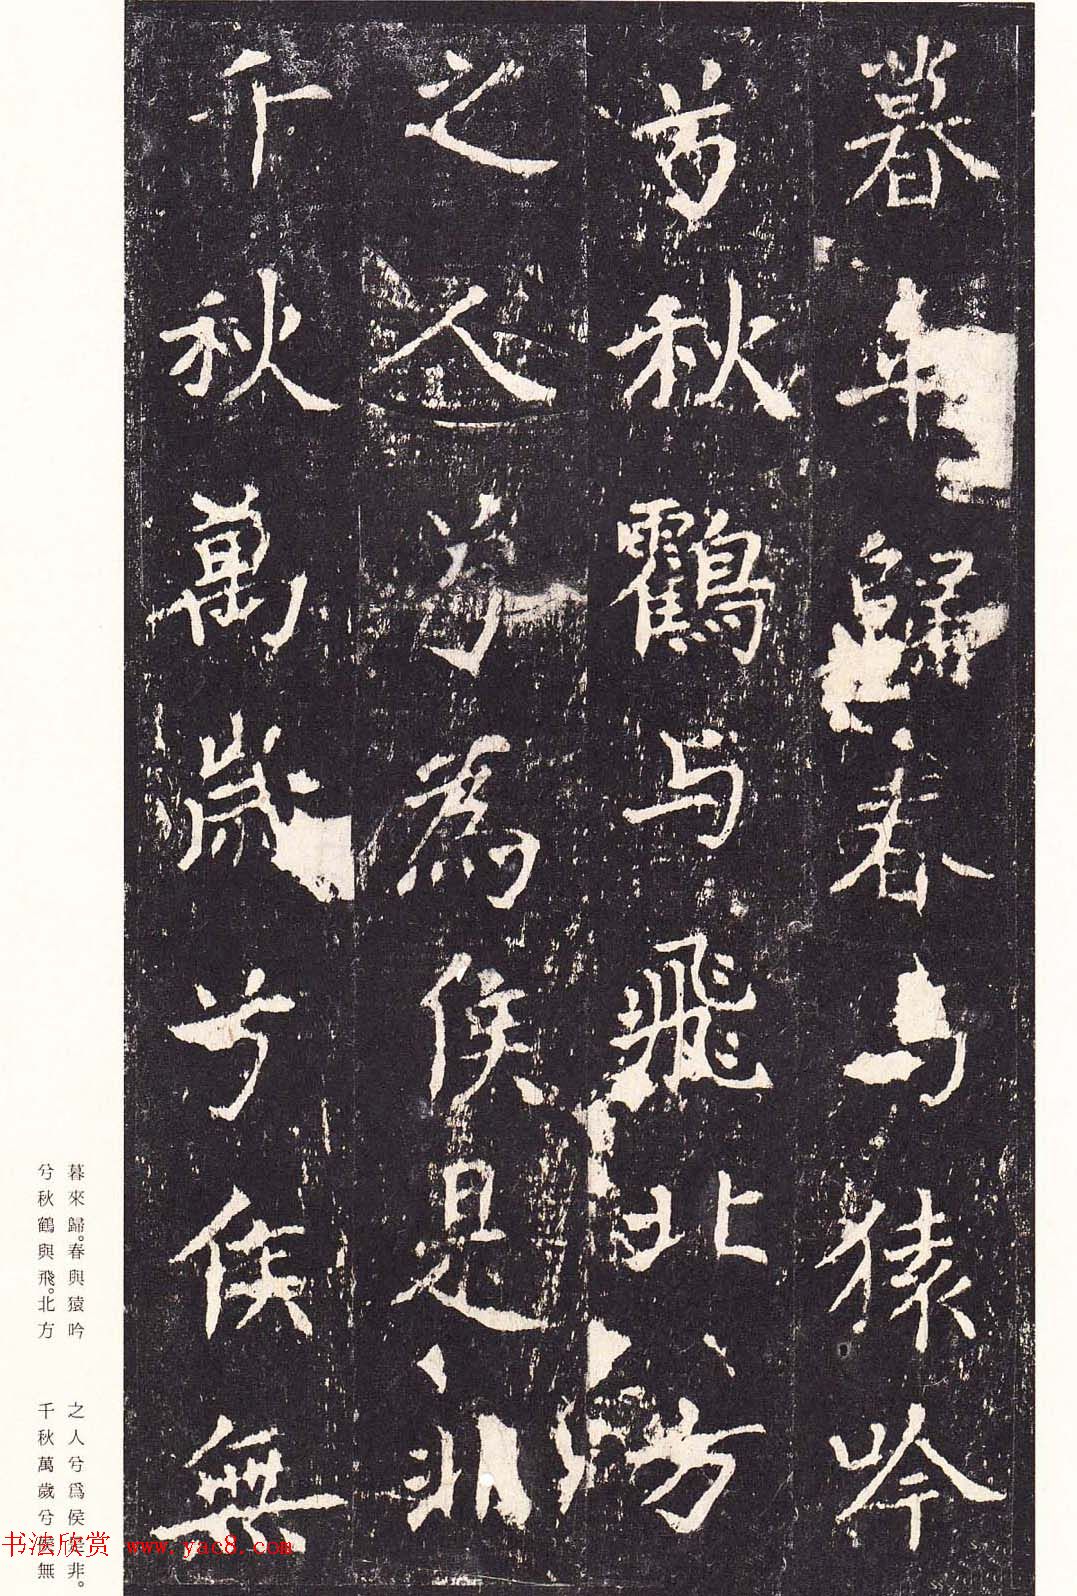 暮來歸春与猿吟
兮秋鶴与飛北方
之人兮為侯是非
千秋萬歲兮侯無
暮來歸。春與猿吟
兮秋鶴與飛。北方
之人兮爲侯是非。
千秋萬歲兮侯無
书法欣赏 www.yac8.com